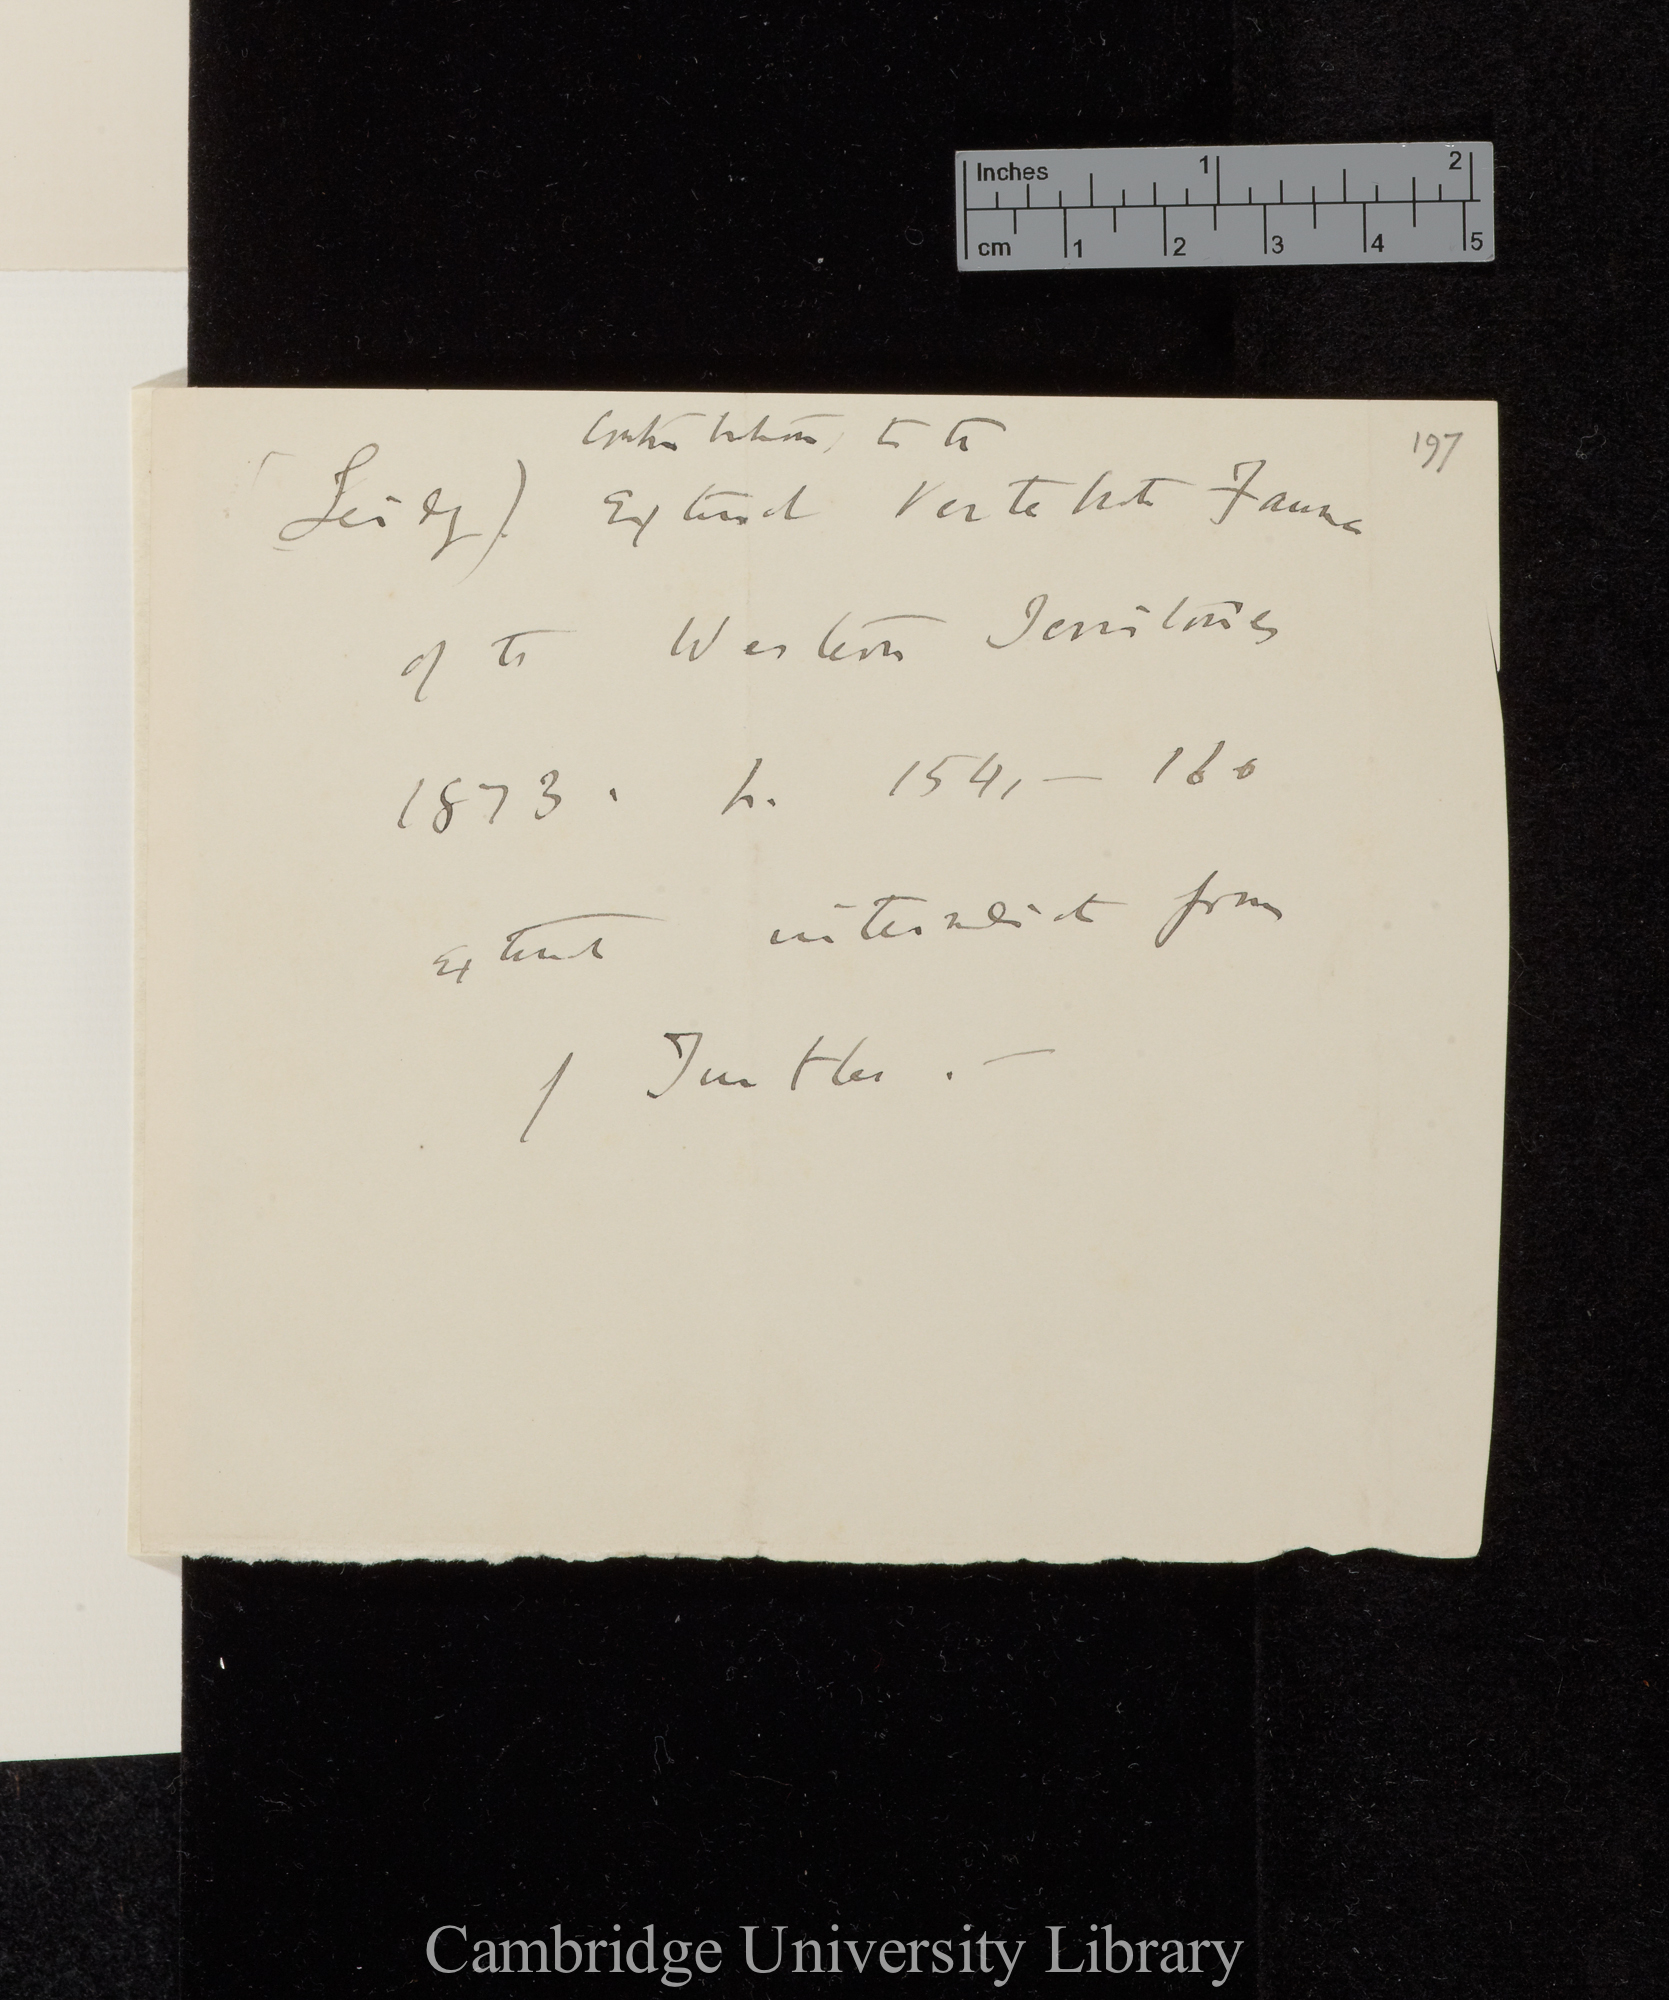 Inches 1 2
cm 1 2 3 4 5
197
Contributions to the
(Leidy) Extinct Vertebrate Fauna
of the Western Territories
1873. p. 154, — 160
extinct intermediate forms
of Turtles. —
Cambridge University Library